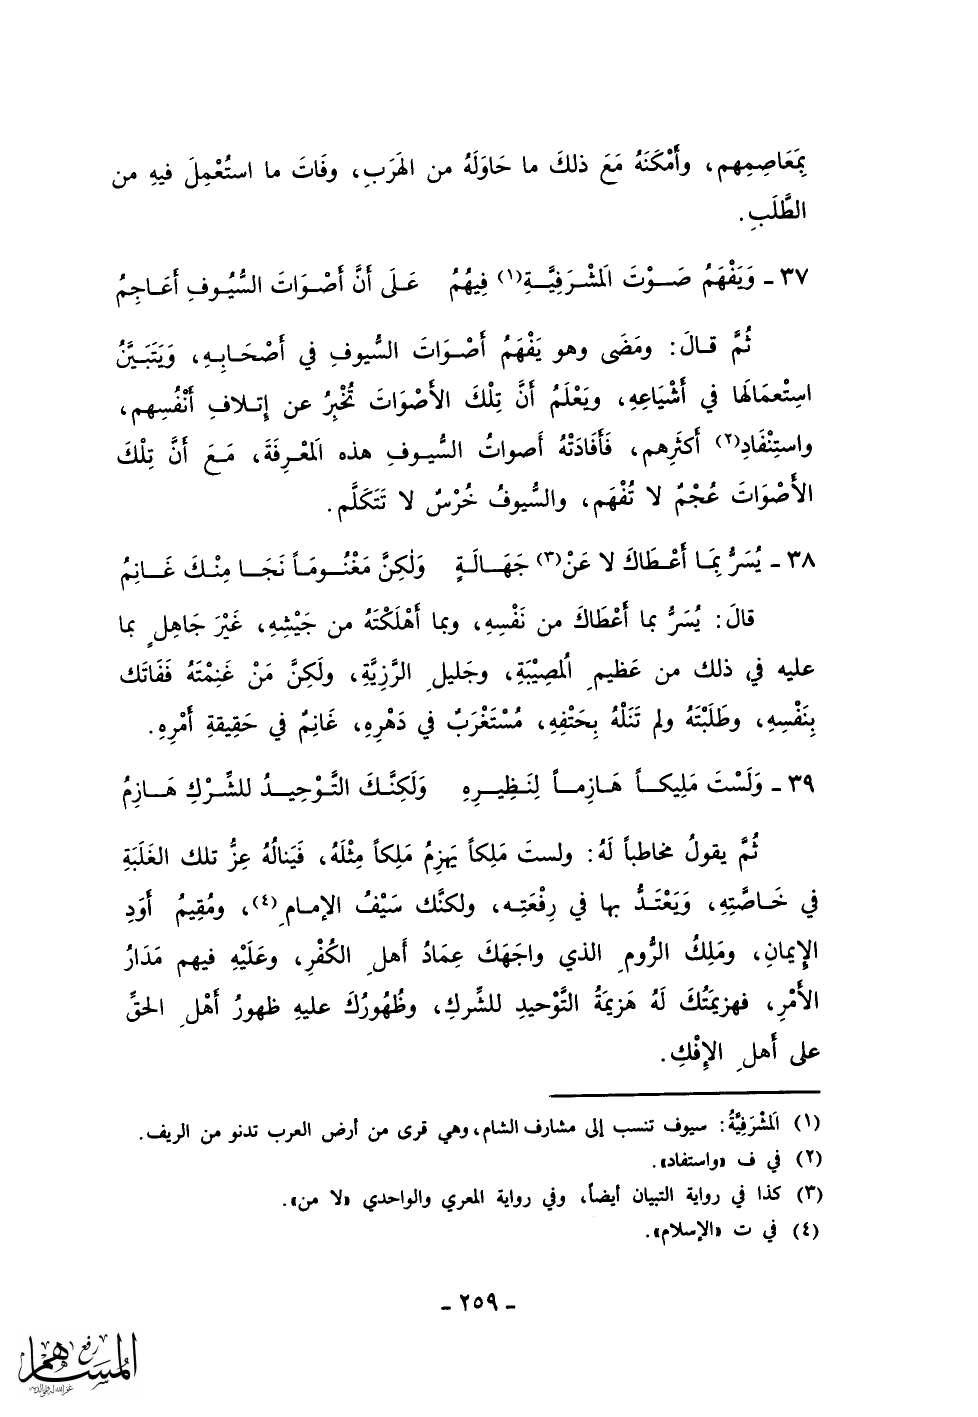 بِمَعَاصِمِهم، وأَمْكَنَهُ مَعَ ذلكَ ما حَاوَلَهُ من الهَرَبِ، وفَاتَ ما استُعْمِلَ فيهِ من
الطَّلَبِ.
٣٧ ـ وَيَفْهَمُ صَوْتَ المَشْرَفِيَّةِ(١) فِيهُمُ عَلَى أَنَّ أَصْوَاتَ السُّيُوفِ أَعَاجِمُ
ثُمَّ قالَ: ومَضَى وهو يَفْهَمُ أَصْوَاتَ السُّيوفِ في أَصْحَابِهِ، وَيَتَبَيَّنُ
اسِتْعمَالَها في أَشْيَاعِهِ، ويَعْلَمُ أَنَّ تِلْكَ الأَصْوَاتَ تُخْبِرُ عن إتلافِ أَنْفُسِهم،
واستِنْفَادِ(٢) أَكثَرِهم، فَأَفَادَتْهُ أَصواتُ السُّيوفِ هذه المَعْرِفَةَ، مَعَ أَنَّ تِلْكَ
الأَصْوَاتَ عُجْمٌ لا تُفْهَم، والسُّيوفُ خُرْسٌ لا تَتَكَلَّم.
٣٨ ـ يُسَرُّ بِمَا أَعْطَاكَ لا عَنْ(٣) جَهَالَةٍ وَلٰكِنَّ مَغْنُومَاً نَجَا مِنْكَ غَانِمُ
قالَ: يُسَرُّ بما أَعْطَاكَ من نَفْسِهِ، وبما أَهْلَكْتَهُ من جَيْشِهِ، غَيْرَ جَاهِلٍ بما
عليه في ذلك من عَظيمِ المُصِيْبَةِ، وجَليلِ الرَّزِيَّةِ، ولَكِنَّ مَنْ غَنِمْتَهُ فَفَاتَك
بِنَفْسِهِ، وطَلَبْتَهُ ولم تَنَلْهُ بِحَتْفِهِ، مُسْتَغْرَبٌ في دَهْرِهِ، غَانِمٌ في حَقِيقةِ أَمْرِهِ.
٣٩ ـ وَلَسْتَ مَلِيكاً هَازِماً لِنَظِيرِهِ وَلَكِنَّكَ التَّوْحِيدُ للشِّرْكِ هَازِمُ
ثُمَّ يقولُ مخاطباً لَهُ: ولستَ مَلِكاً يَهزِمُ مَلِكاً مِثْلَهُ، فَيَنالُهُ عِزُّ تلك الغَلَبَةِ
في خَاصَّتِهِ، وَيَعْتَدُّ بها في رِفْعَتِه، ولكنَّك سَيْفُ الإمامِ(٤)، ومُقِيمُ أَوَدِ
الإِيمانِ، ومَلِكُ الرُّومِ الذي واجَهَكَ عِمَادُ أَهلِ الكُفْرِ، وعَلَيْهِ فيهم مَدَارُ
الأَمْرِ، فهزيمَتُكَ لَهُ هَزيمَةُ التَّوْحيدِ للشِّركِ، وظُهُورُكَ عليهِ ظهورُ أَهْلِ الحقِّ
على أَهلِ الإِفْكِ.
(١) المَشْرَفِيَّةُ: سيوف تنسب إلى مشارف الشام، وهي قرى من أرض العرب تدنو من الريف.
(٢) في ف «واستفاد».
(٣) كذا في رواية التبيان أيضاً، وفي رواية المعري والواحدي «لا من».
(٤) في ت «الإسلام».
ـ ٢٥٩ ـ
رفع
المساهم